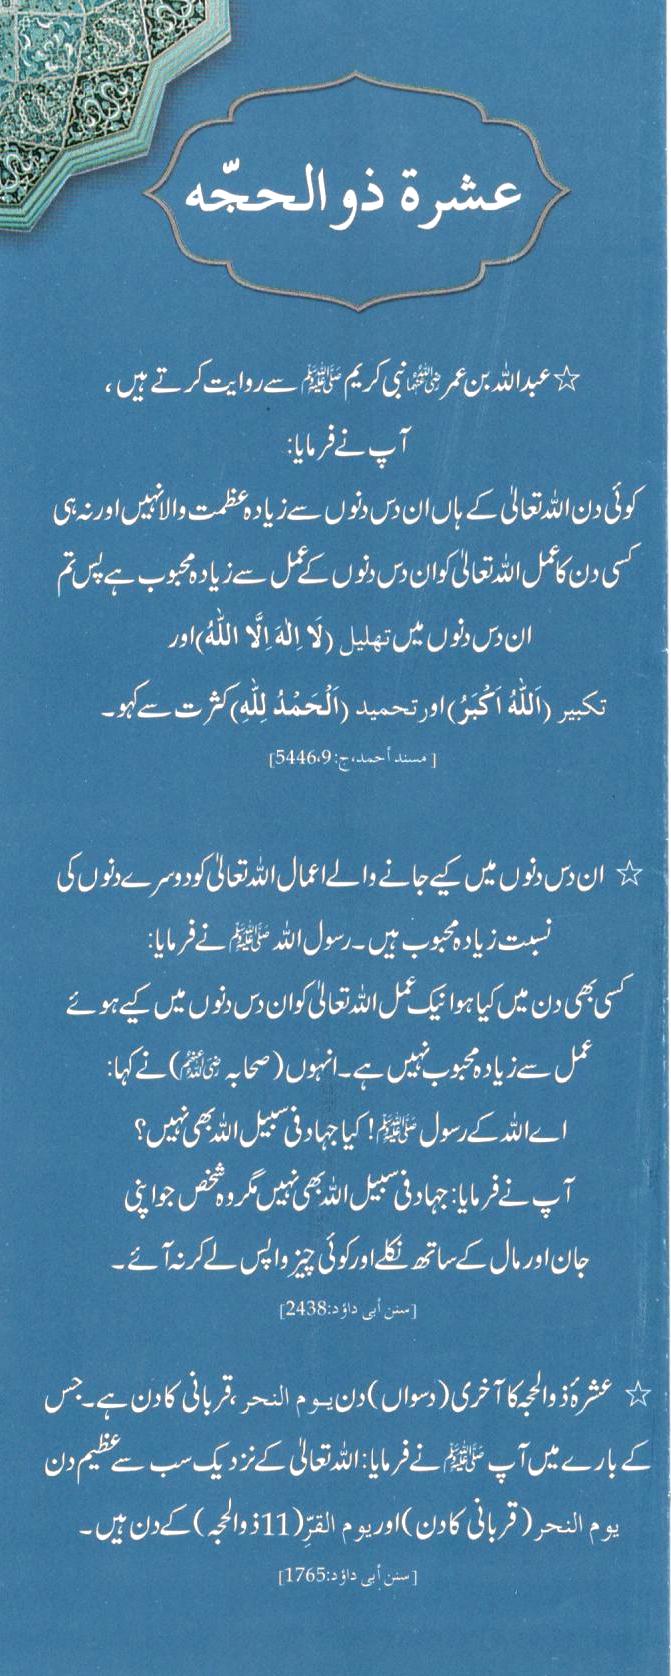 عشرة ذو الحجّه
☆ عبداللہ بن عمر رضی اللہ عنہما نبی کریم ﷺ سے روایت کرتے ہیں،
آپ نے فرمایا:
کوئی دن اللہ تعالیٰ کے ہاں ان دس دنوں سے زیادہ عظمت والا نہیں اور نہ ہی
کسی دن کا عمل اللہ تعالیٰ کو ان دس دنوں کے عمل سے زیادہ محبوب ہے پس تم
ان دس دنوں میں تهلیل (لَا اِلٰهَ اِلَّا اللّٰهُ) اور
تکبیر (اَللّٰهُ اَكْبَرُ) اور تحمید (اَلْحَمْدُ لِلّٰهِ) کثرت سے کہو۔
[مسند أحمد، ج:9، 5446]
☆ ان دس دنوں میں کیے جانے والے اعمال اللہ تعالیٰ کو دوسرے دنوں کی
نسبت زیادہ محبوب ہیں۔ رسول اللہ ﷺ نے فرمایا:
کسی بھی دن میں کیا ہوا نیک عمل اللہ تعالیٰ کو ان دس دنوں میں کیے ہوئے
عمل سے زیادہ محبوب نہیں ہے۔ انہوں (صحابہ رضی اللہ عنہم) نے کہا:
اے اللہ کے رسول ﷺ! کیا جہاد فی سبیل اللہ بھی نہیں؟
آپ نے فرمایا: جہاد فی سبیل اللہ بھی نہیں مگر وہ شخص جو اپنی
جان اور مال کے ساتھ نکلے اور کوئی چیز واپس لے کر نہ آئے۔
[سنن أبی داؤد:2438]
☆ عشرۂ ذوالحجہ کا آخری (دسواں) دن یوم النحر، قربانی کا دن ہے۔ جس
کے بارے میں آپ ﷺ نے فرمایا: اللہ تعالیٰ کے نزدیک سب سے عظیم دن
یوم النحر (قربانی کا دن) اور یوم القرِّ (11 ذوالحجہ) کے دن ہیں۔
[سنن أبی داؤد:1765]